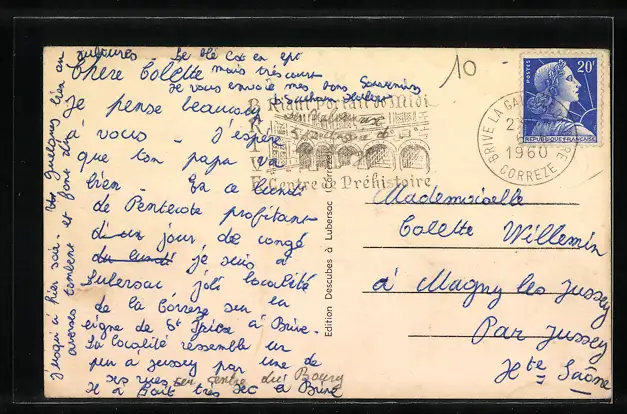 cultures - Le blé est en épi
Chère Colette mais très court
Je vous envoie mes bons souvenirs
Je pense beaucoup
à vous - J'espère
que ton papa va
bien - En ce lundi
de Pentecote profitant
d'un jour de congé
du lundi je suis à
Lubersac joli localité
de la Corrèze sur la
ligne de St Yrieix à Brive.
La localité ressemble un
peu à Jussey par une de
ses rues en centre du Bourg
Il a fait très sec à Brive
jusqu'à hier soir. Quelques
averses tombent et font du bien aux
BRIVE
Riant Portail du Midi
Centre de Préhistoire
Edition Descubes à Lubersac (Corrèze)
10
POSTES 20F
REPUBLIQUE FRANÇAISE
BRIVE LA GAILLARDE
1960
CORREZE
Mademoiselle
Colette Willemin
à Magny les Jussey
Par Jussey
Hte Saône